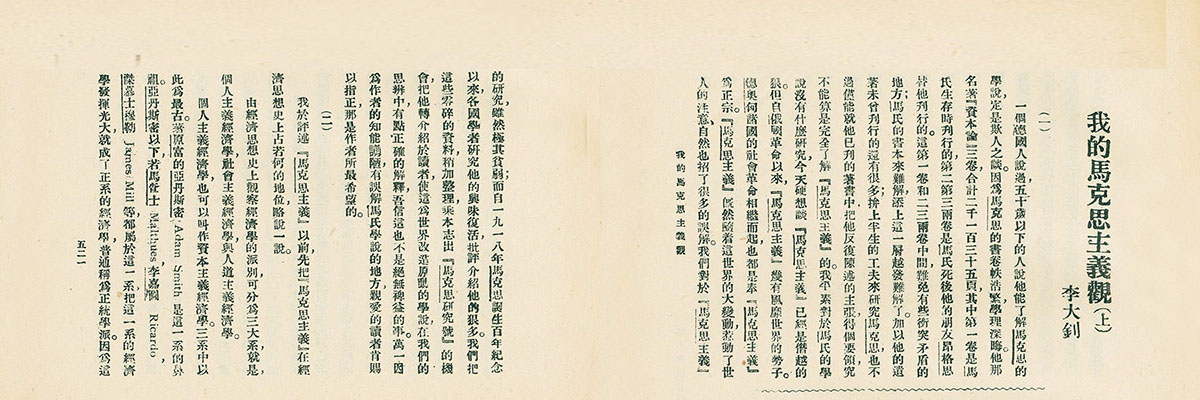 我的馬克思主義觀(上)
李大釗
(一)
一個德國人說過，五十歲以下的人說他能了解馬克思的
學說，定是欺人之談。因爲馬克思的書卷帙浩繁，學理深晦。他那
名著『資本論』三卷，合計二千一百三十五頁，其中第一卷是馬
氏生存時刊行的，第二第三兩卷是馬氏死後他的朋友昂格思
替他刊行的。這第一卷和二三兩卷中間，難免有些衝突矛盾的
地方，馬氏的書本來難解，添上這一層越發難解了。加以他的遺
著未曾刊行的還有很多，拚上半生的工夫來研究馬克思，也不
過僅能就他已刊的著書中，把他反復陳述的主張得個要領，究
不能算是完全了解『馬克思主義』的。我平素對於馬氏的學
說沒有什麼研究，今天硬想談『馬克思主義』已經是僭越的
很。但自俄國革命以來，『馬克思主義』幾有風靡世界的勢子，
德奧匈諸國的社會革命相繼而起，也都是奉『馬克思主義』
爲正宗。『馬克思主義』旣然隨着這世界的大變動，惹動了世
人的注意，自然也招了很多的誤解。我們對於『馬克思主義』
我的馬克思主義觀
的研究，雖然極其貧弱，而自一九一八年馬克思誕生百年紀念
以來，各國學者研究他的興味復活，批評介紹他的很多。我們把
這些零碎的資料，稍加整理，乘本志出『馬克思研究號』的機
會，把他轉介紹於讀者，使這爲世界改造原動的學說，在我們的
思辨中，有點正確的解釋，吾信這也不是絕無裨益的事。萬一因
爲作者的知能譾陋，有誤解馬氏學說的地方，親愛的讀者肯賜
以指正，那是作者所最希望的。
(二)
我於評述『馬克思主義』以前，先把『馬克思主義』在經
濟思想史上占若何的地位，略說一說。
由經濟思想史上觀察經濟學的派別，可分爲三大系，就是
個人主義經濟學，社會主義經濟學與人道主義經濟學。
個人主義經濟學，也可以叫作資本主義經濟學。三系中以
此爲最古。著原富的亞丹斯密 Adam Smith 是這一系的鼻
祖。亞丹斯密以下，若馬查士 Malthues 李嘉圖 Ricardo ，
傑慕士穆勒 James Mill 等，都屬於這一系。把這一系的經濟
學發揮光大，就成了正系的經濟學，普通稱爲正統學派。因爲這
五二一